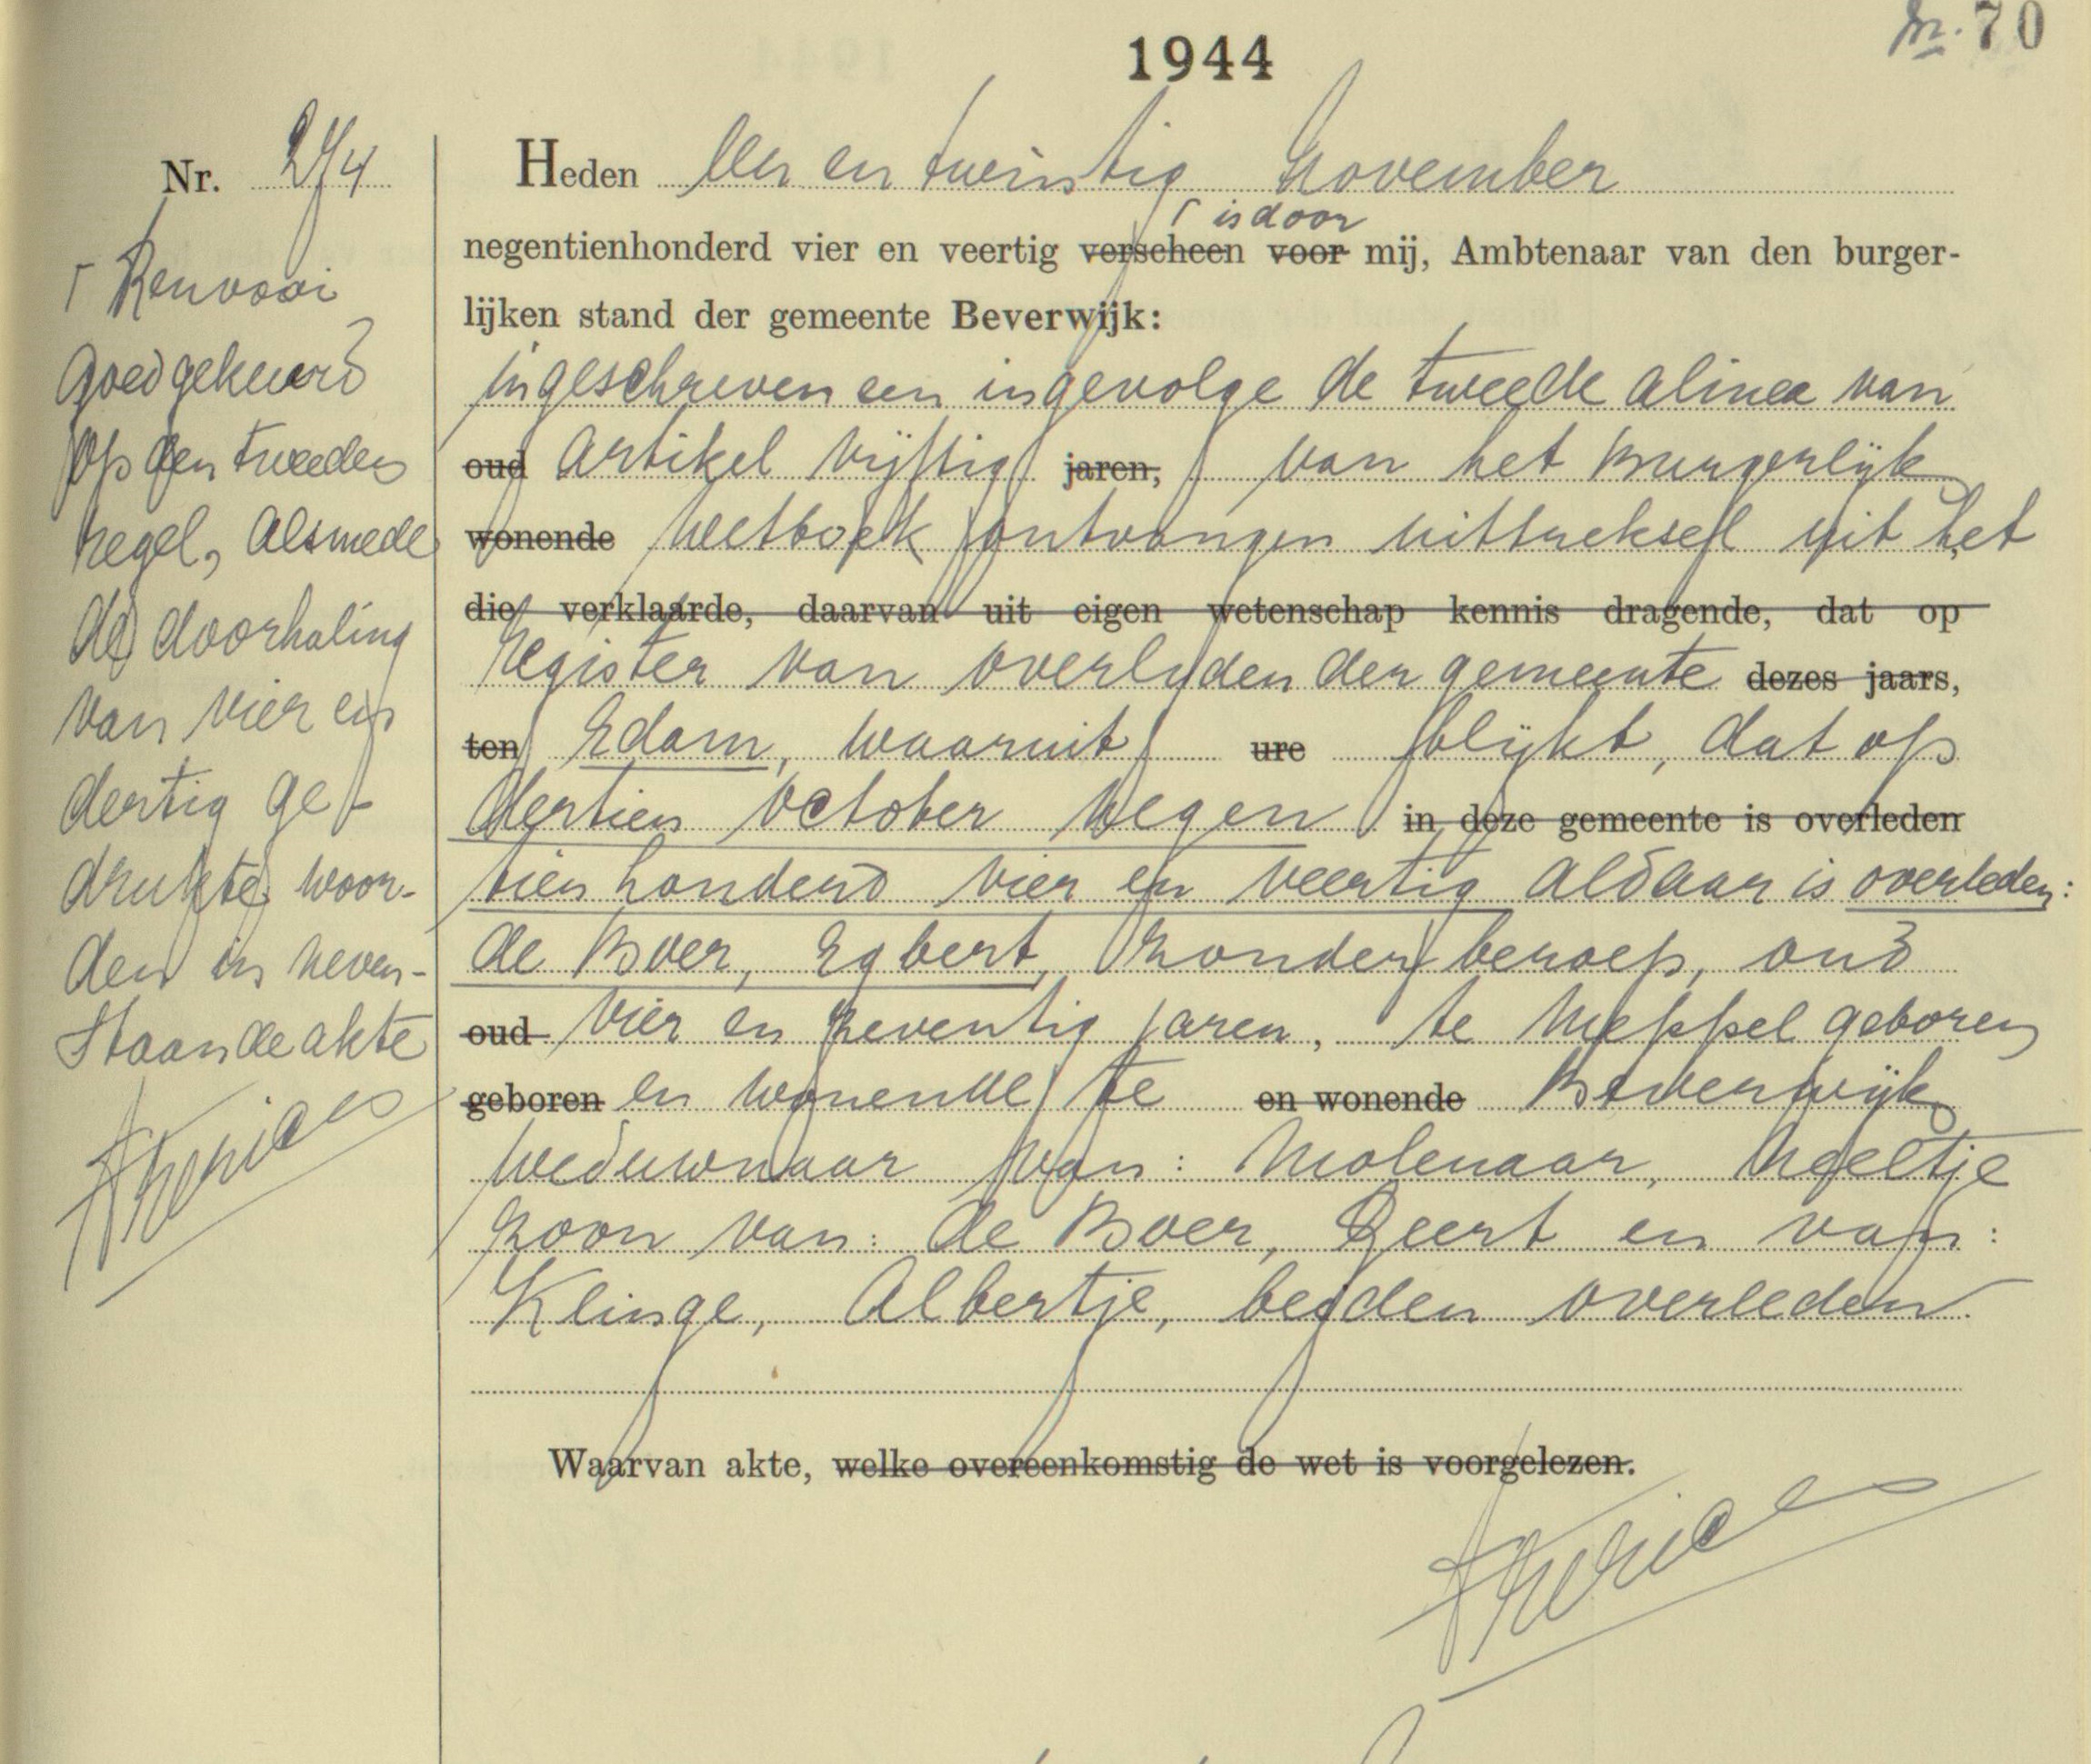 1944
70
Nr. 274
Heden een en twintig November
is door
negentienhonderd vier en veertig verscheen voor mij, Ambtenaar van den burger-
lijken stand der gemeente Beverwijk:
ingeschreven een ingevolge de tweede alinea van
oud artikel vijftig jaren, van het Burgerlijk
wonende Wetboek ontvangen uittreksel uit het
die verklaarde, daarvan uit eigen wetenschap kennis dragende, dat op
register van overlijden der gemeente dezes jaars,
ten Edam, waaruit ure blijkt, dat op
dertien October negen in deze gemeente is overleden
tien honderd vier en veertig aldaar is overleden:
de Boer, Egbert, zonder beroep, oud
oud vier en zeventig jaren, te Meppel geboren
geboren en wonende te en wonende Beverwijk
weduwnaar van: Molenaar, Neeltje
zoon van: de Boer, Geert en van:
Klinge, Albertje, beiden overleden.
Waarvan akte, welke overeenkomstig de wet is voorgelezen.
Renvooi
goedgekeurd
op den tweeden
regel, alsmede
de doorhaling
van vier en
dertig ge-
drukte woor-
den in neven-
staande akte